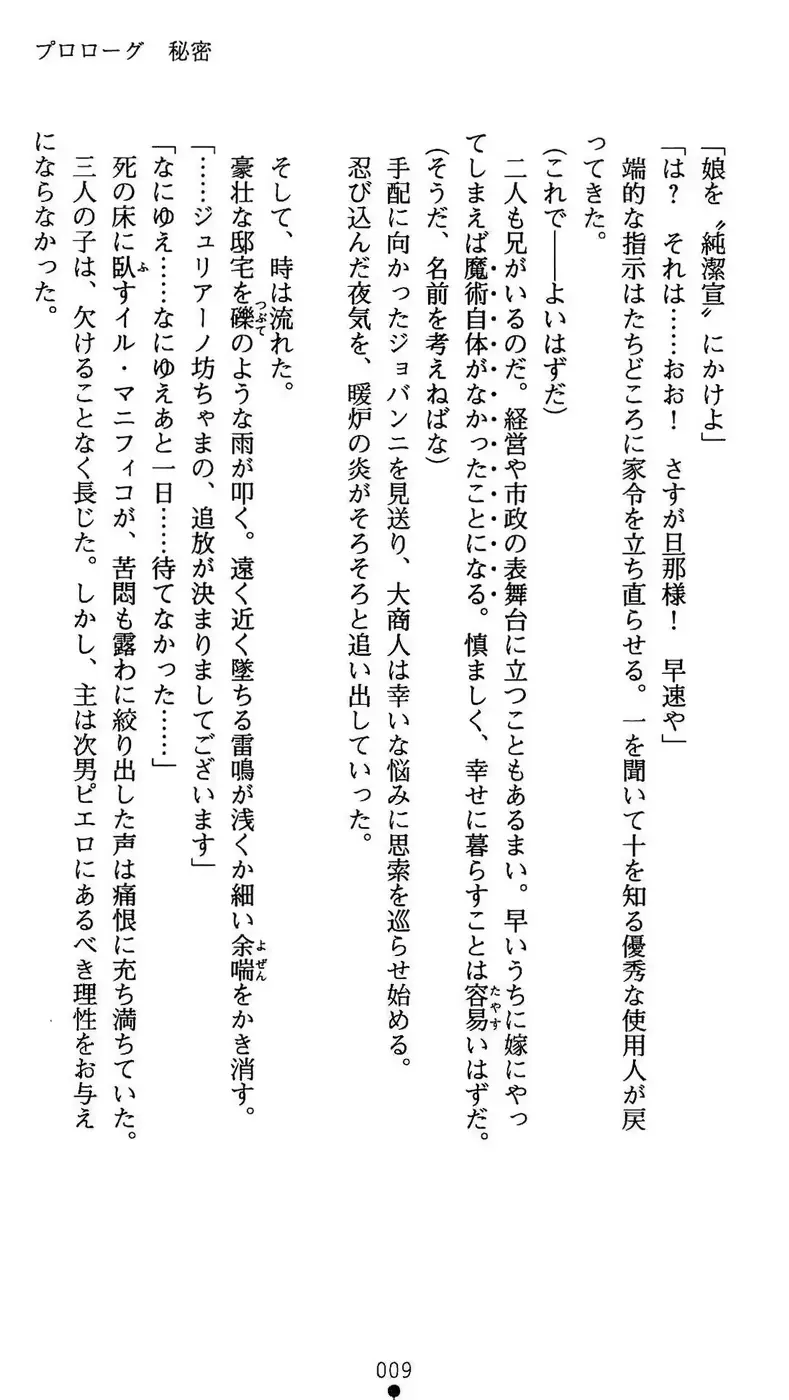 プロローグ　秘密
「娘を〝純潔宣〟にかけよ」
「は？　それは……おお！　さすが旦那様！　早速や」
　端的な指示はたちどころに家令を立ち直らせる。一を聞いて十を知る優秀な使用人が戻
ってきた。
（これで――よいはずだ）
　二人も兄がいるのだ。経営や市政の表舞台に立つこともあるまい。早いうちに嫁にやっ
てしまえば魔術自体がなかったことになる。慎ましく、幸せに暮らすことは容易いはずだ。
（そうだ、名前を考えねばな）
　手配に向かったジョバンニを見送り、大商人は幸いな悩みに思索を巡らせ始める。
　忍び込んだ夜気を、暖炉の炎がそろそろと追い出していった。
　そして、時は流れた。
　豪壮な邸宅を礫のような雨が叩く。遠く近く墜ちる雷鳴が浅くか細い余喘をかき消す。
「……ジュリアーノ坊ちゃまの、追放が決まりましてございます」
「なにゆえ……なにゆえあと一日……待てなかった……」
　死の床に臥すイル・マニフィコが、苦悶も露わに絞り出した声は痛恨に充ち満ちていた。
　三人の子は、欠けることなく長じた。しかし、主は次男ピエロにあるべき理性をお与え
にならなかった。
009